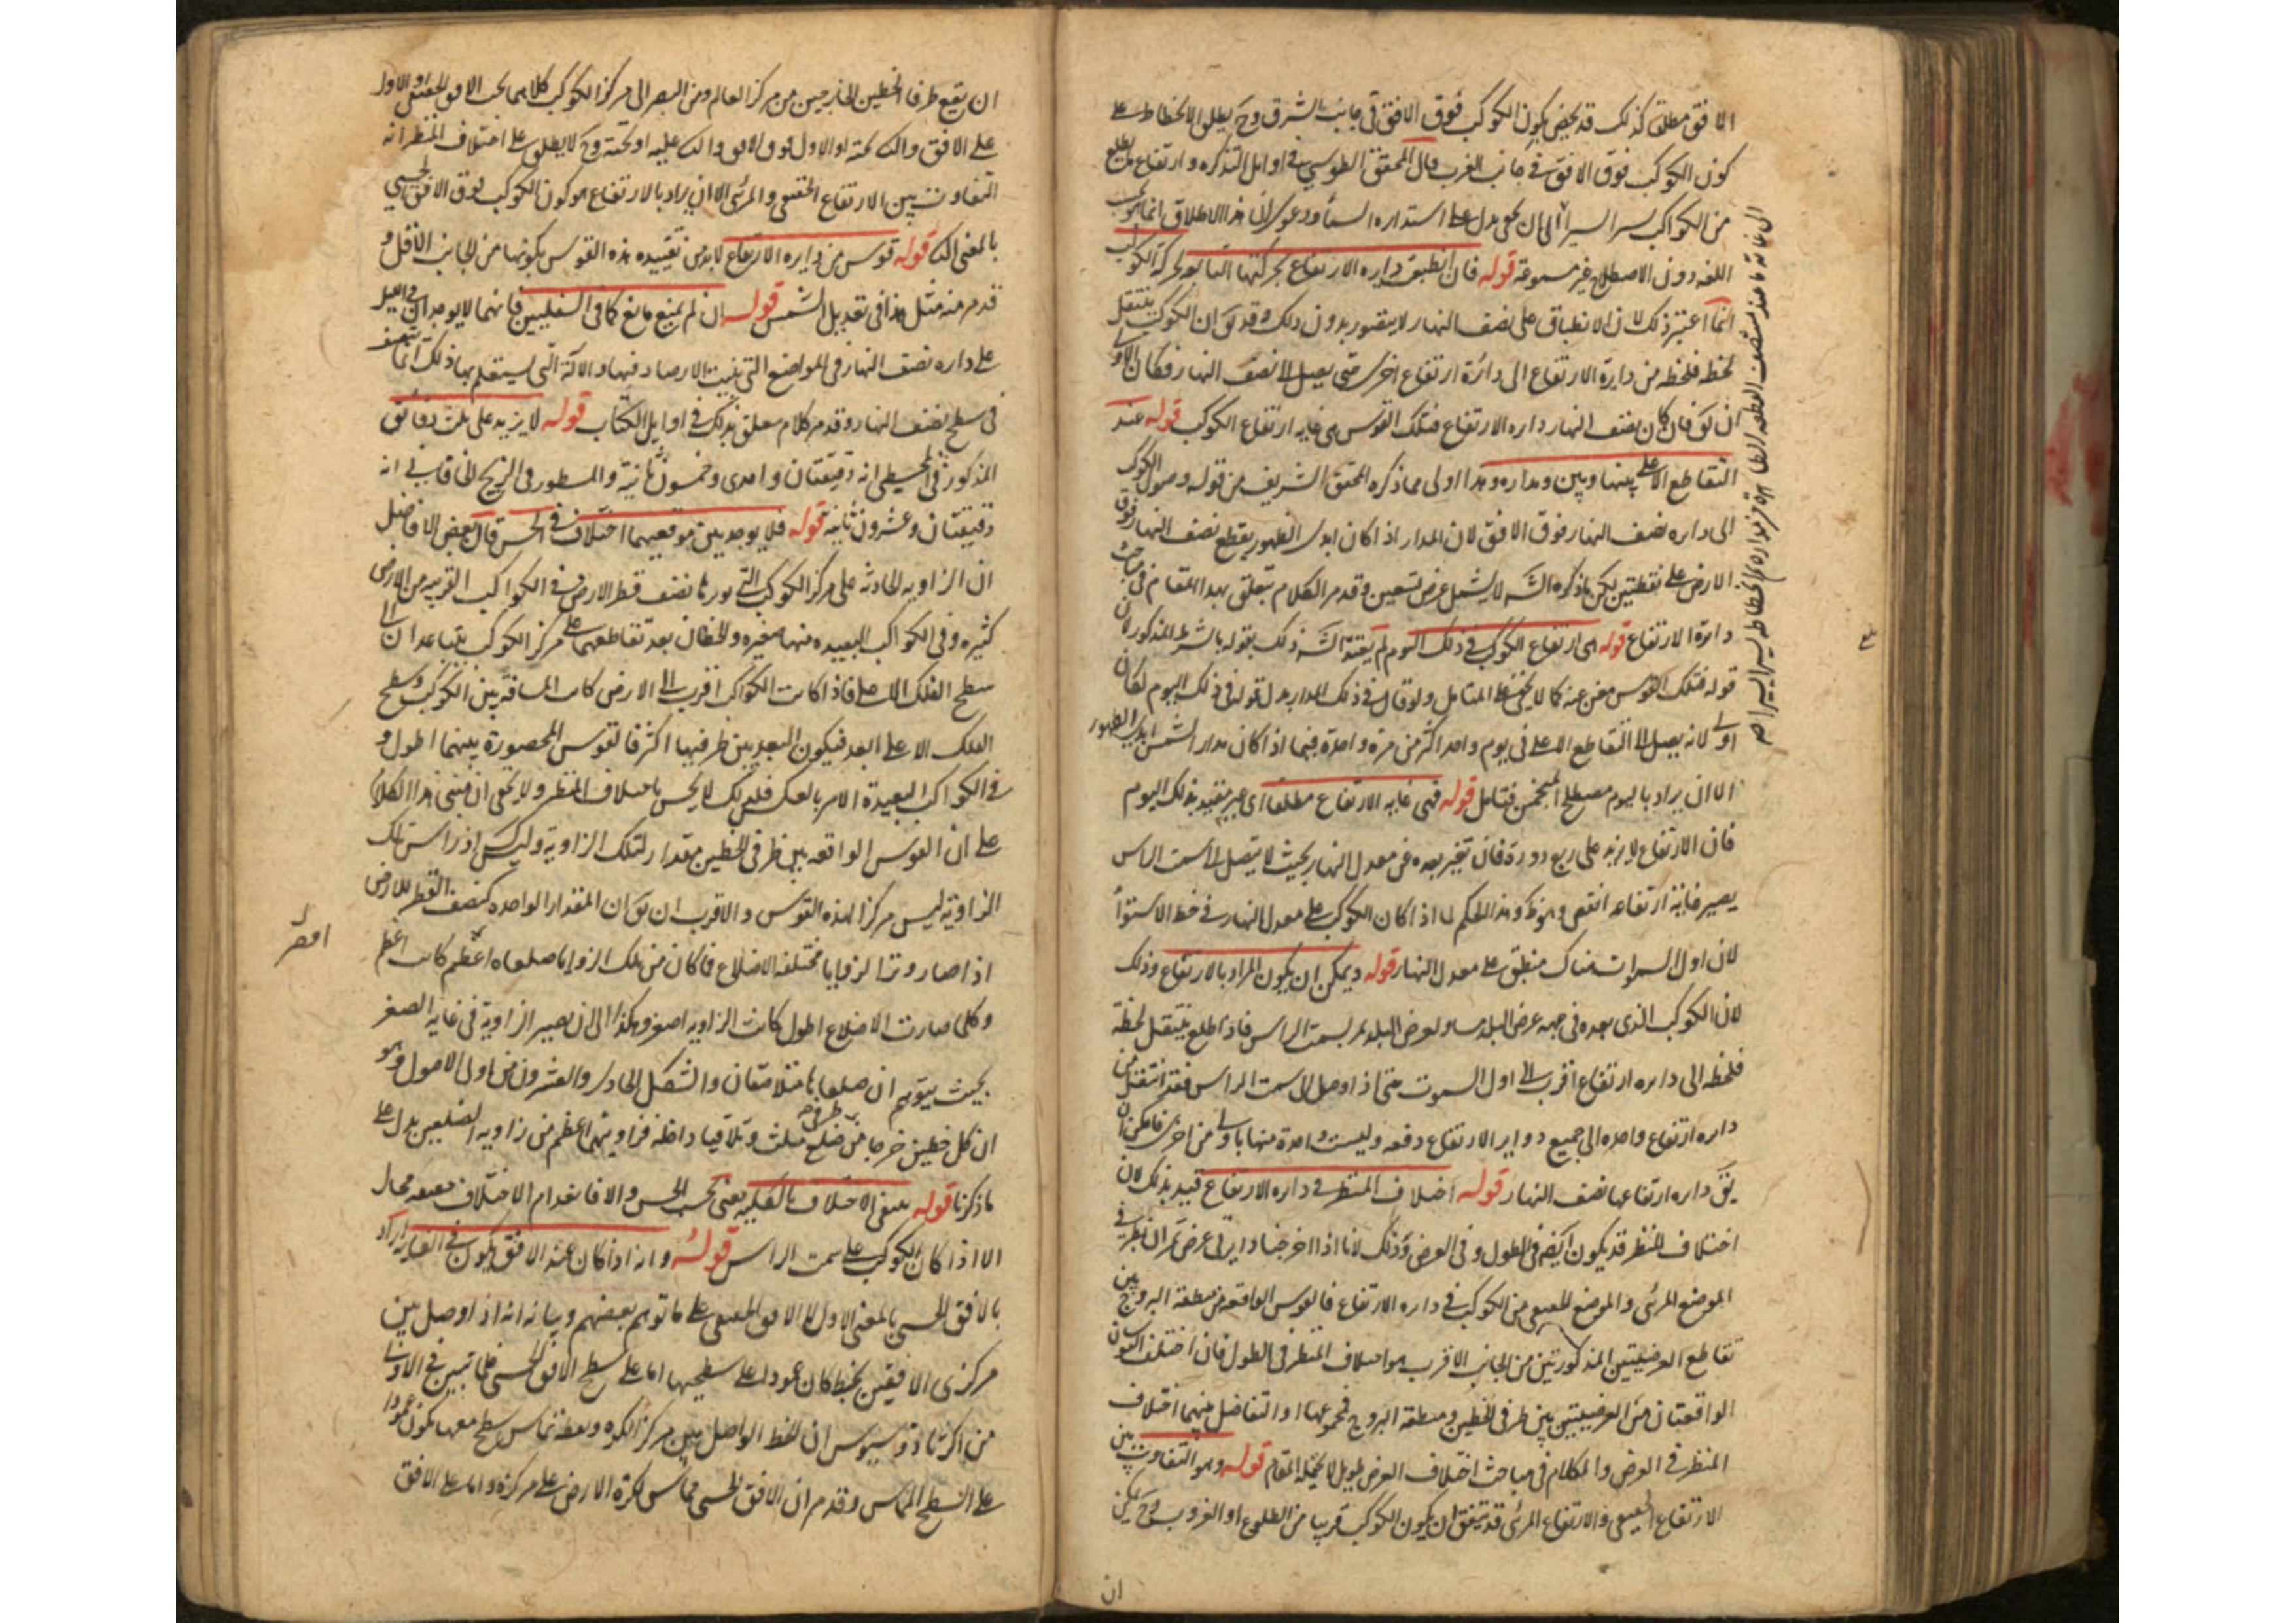 الافق مطلقا كذلك قد يخص بكون الكوكب فوق الافق في جانب الشرق وح يطلق الانحطاط على
كون الكوكب فوق الافق في جانب الغرب قال المحقق الطوسي في اوايل التذكره وارتفاع ما يطلع
من الكواكب يدل على استداره السماء ودعوى ان هذا الاطلاق انما هو بحسب
اللغه دون الاصطلاح غير مسموعة قوله فان انطبقت دايره الارتفاع بحركتها التابعة لحركة الكوكب
انما اعتبر ذلك لان الانطباق على نصف النهار لا يتصور بدون ذلك وقد يق ان الكوكب ينتقل
لحظه فلحظه من دايرة الارتفاع الى دائرة ارتفاع اخرى حتى يصل الى نصف النهار فكان الاولى
ان يق فان كان نصف النهار دايره الارتفاع فتلك القوس هي غايه ارتفاع الكوكب قوله عند
التقاطع الاعلى بينها وبين مداره وهذا اولى مما ذكره المحقق الشريف من قوله وصول الكوكب
الى دايره نصف النهار فوق الافق لان المدار اذا كان ابدى الظهور يقطع نصف النهار فوق
الارض على نقطتين لكن ما ذكره الشـ لا يشمل عرض تسعين وقد مر الكلام يتعلق بهذا المقام في مباحث
دائرة الارتفاع قوله هي ارتفاع الكوكب في ذلك اليوم لم يقيد الشـ ذلك بقوله بالشرط المذكور لان
قوله فتلك القوس مغن عنه كما لا يخفى على المتامل ولو قال في ذلك المدار بدل قوله في ذلك اليوم لكان
اولى لانه يصل الى التقاطع الاعلى في يوم واحد اكثر من مرة واحدة فيما اذا كان مدار الشمس ابدى الظهور
الا ان يراد باليوم مصطلح المنجمين فتامل قوله فهي غايه الارتفاع مطلقا اى غير مقيد بذلك اليوم
فان الارتفاع لا يزيد على ربع دورة فان تغير بعده عن معدل النهار بحيث لا يصل الى سمت الراس
يصير غاية ارتفاعه انقص وهذا الحكم اذا كان الكوكب على معدل النهار في خط الاستواء
لان اول السموات هناك منطبق على معدل النهار قوله ويمكن ان يكون المراد بالارتفاع وذلك
لان الكوكب الذى بعده في جهه عرض البلد مساو لعرض البلد يمر بسمت الراس فاذا طلع ينتقل لحظة
فلحظه الى دايره ارتفاع اقرب الى اول السموت حتى اذا وصل الى سمت الراس فقد انتقل من
دايره ارتفاع واحده الى جميع دواير الارتفاع دفعه وليست واحدة منها باولى من اخرى فامكن ان
يق دايره ارتفاعها نصف النهار قوله اختلاف المنظر في دايره الارتفاع قيد بذلك لان
اختلاف المنظر قد يكون ايضا في الطول وفي العرض وذلك لانا اذا اخرجنا دايرتى عرض تمران بطرفى
الموضع المرئى والموضع الحقيقى من الكوكب في دايره الارتفاع فالقوس الواقعه من منطقة البروج بين
تقاطع العرضيتين المذكورتين من الجانب الاقرب هو اختلاف المنظر في الطول فان اختلف القوسان
الواقعتان من العرضيتين بين طرفى الخطين ومنطقه البروج فمجموعهما او التفاضل بينهما اختلاف
المنظر في العرض والكلام في مباحث اختلاف العرض طويل لا يحتمله المقام قوله وهو التفاوت بين
الارتفاع الحقيقى والارتفاع المرئى قد يتفق ان يكون الكوكب قريبا من الطلوع او الغروب وح يمكن
ان
ان يقع طرفا الخطين الخارجين من مركز العالم ومن البصر الى مركز الكوكب كلاهما تحت الافق الحقيقى او الاول
على الافق والثـ تحته او الاول فوق الافق والثـ عليه او تحته وح لا يطلق على اختلاف المنظر انه
التفاوت بين الارتفاع الحقيقى والمرئى الا ان يراد بالارتفاع هو كون الكوكب فوق الافق الحسى
بالمعنى الثـ قوله قوس من دايره الارتفاع لا بد من تقييده هذه القوس بكونها من الجانب الاقل و
قد مر منه مثل هذا في تعديل الشمس قوله ان لم يمنع مانع كما في السفليين فانهما لا يوجدان في الليل
على دايره نصف النهار في المواضع التى بنيت الارصاد فيها والالة التى يستعلم بها ذلك انما تنصب
في سطح نصف النهار وقد مر كلام متعلق بذلك في اوايل الكتاب قوله لا يزيد على ثلث دقائق
المذكور في المجسطى انه دقيقتان واحدى وخمسون ثانية والمسطور في الزيج الخاقانى انه
دقيقتان وعشرون ثانية قوله فلا يوجد بين موقعيهما اختلاف في الحس قال بعض الافاضل
ان الزاويه الحادثه على مركز الكوكب التى يوترها نصف قطر الارض في الكواكب القريبه من الارض
كثيره وفي الكواكب البعيده منها صغيره والخطان بعد تقاطعهما على مركز الكوكب يتباعدان الى
سطح الفلك الاعلى فاذا كانت الكواكب اقرب الى الارض كانت المسافة بين الكوكب وسطح
الفلك الاعلى ابعد فيكون البعد بين طرفيها اكثر فالقوس المحصورة بينهما اطول و
في الكواكب البعيدة الامر بالعكس فلذلك لا يحس باختلاف المنظر ولا يخفى ان مبنى هذا الكلام
على ان القوس الواقعه بين طرفى الخطين مقدار لتلك الزاوية وليس كذلك اذ راس تلك
الزاوية ليس مركز الهذه القوس والاقرب ان يق ان المقدار الواحد كنصف القطر للارض
اذا صار وتر الزوايا مختلفه الاضلاع فما كان من تلك الزوايا ضلعاه اعظم كانت اعظم
اقصر
وكلما صارت الاضلاع اطول كانت الزاويه اصغر وهكذا الى ان يصير الزاوية في غايه الصغر
بحيث يتوهم ان ضلعاها متلاصقان والشكل الحادى والعشرون من اولى الاصول وهو
ان كل خطين خرجا من طرفى ضلع مثلث وتلاقيا داخله فزاويتهما اعظم من زاويه الضلعين يدل على
ما ذكرنا قوله ينتفى الاختلاف بالكليه يعنى بحسب الحس والا فانعدام الاختلاف حقيقه محال
الا اذا كان الكوكب على سمت الراس قوله وانه اذا كان عند الافق يكون في الغايه اراد
بالافق الحسى بالمعنى الاول لا الافق الحقيقى على ما توهم بعضهم وبيانه انه اذا وصل بين
مركزى الافقين بخط كان عمودا على سطحيهما اما على سطح الافق الحسى فلما تبين في الاولى
من اكرثاوذوسيوس ان الخط الواصل بين مركز الكره ونقطه تماس سطح معها يكون عمودا
على السطح المماس وقد مر ان الافق الحسى مماس لكرة الارض على مركزه واما على الافق